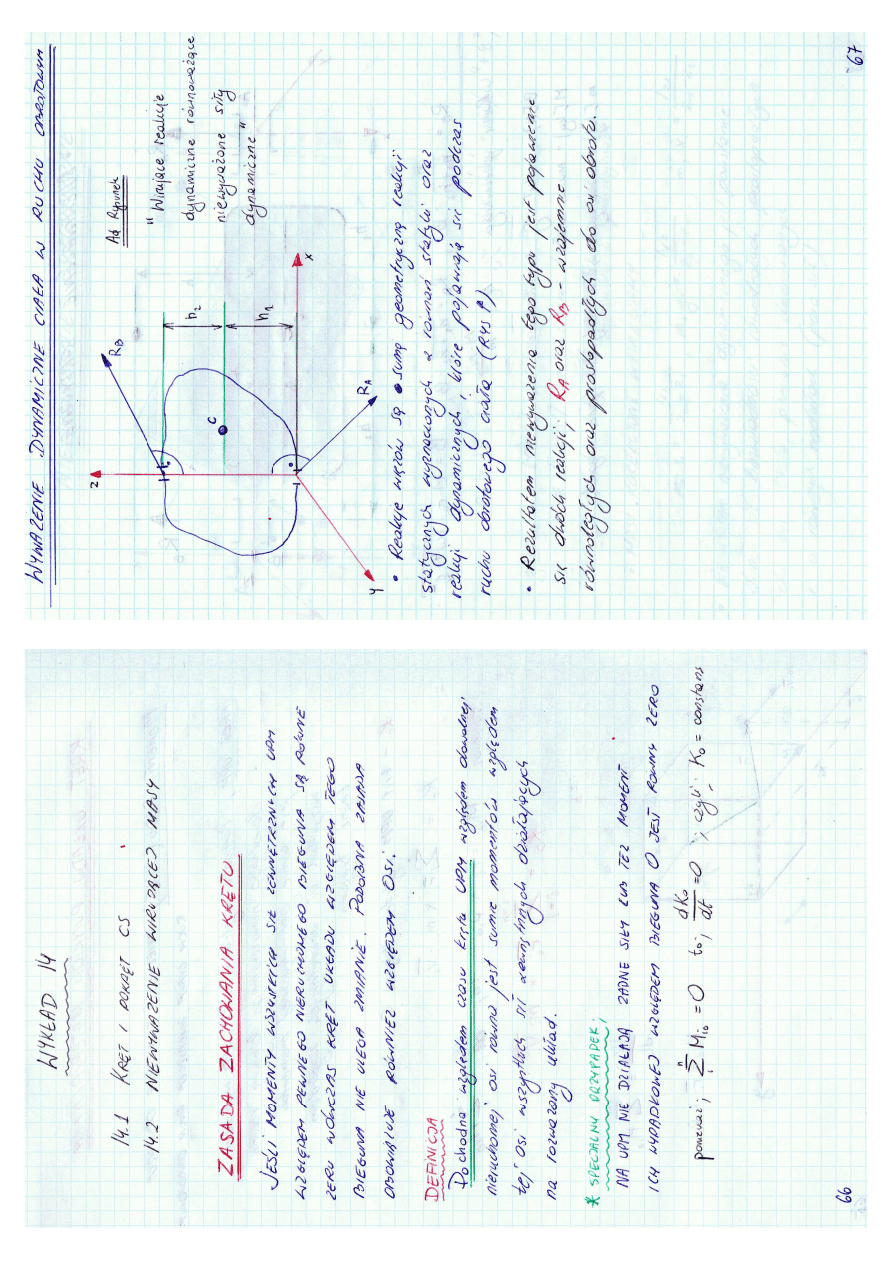 WYKŁAD 14
14.1 KRĘT I POKRĘT CS
14.2 NIEWYWAŻENIE WIRUJĄCEJ MASY
ZASADA ZACHOWANIA KRĘTU
JEŚLI MOMENTY WSZYSTKICH SIŁ ZEWNĘTRZNYCH UPM
WZGLĘDEM PEWNEGO NIERUCHOMEGO BIEGUNA SĄ RÓWNE
ZERU WÓWCZAS KRĘT UKŁADU WZGLĘDEM TEGO
BIEGUNA NIE ULEGA ZMIANIE. PODOBNA ZASADA
OBOWIĄZUJE RÓWNIEŻ WZGLĘDEM OSI.
DEFINICJA
Pochodna względem czasu krętu UPM względem dowolnej
nieruchomej osi równa jest sumie momentów względem
tej osi wszystkich sił zewnętrznych działających
na rozważany układ.
* SPECJALNY PRZYPADEK;
NA UPM NIE DZIAŁAJĄ ŻADNE SIŁY LUB TEŻ MOMENT
ICH WYPADKOWEJ WZGLĘDEM BIEGUNA O JEST RÓWNY ZERO
ponieważ; n∑i Mio = 0 to; dKo/dt = 0 ; czyli; Ko = constans
66
WYWAŻENIE DYNAMICZNE CIAŁA W RUCHU OBROTOWYM
Ad Rysunek
"Wirujące reakcje
dynamiczne równoważące
niewyważone siły
dynamiczne"
z
RB
h2
C
h1
x
RA
y
• Reakcje więzów są sumą geometryczną reakcji
statycznych wyznaczonych z równań statyki oraz
reakcji dynamicznych, które pojawiają się podczas
ruchu obrotowego ciała (RYS ↑)
• Rezultatem niewyważenia tego typu jest pojawienie
się dwóch reakcji; RA oraz RB - wzajemnie
równoległych oraz prostopadłych do osi obrotu.
67